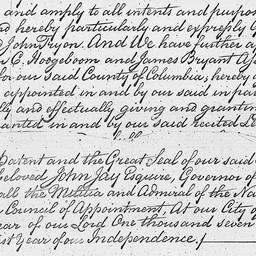 and amply to all intents and purpos
nd hereby particularly and expressly
d John Tryon. And We have further a
C. Hogeboom and James Bryant
for our said County of Columbia, hereby
appointed in and by our said in pa
lly and effectually giving and grantin
anted in and by our said recited Le
Patent and the Great Seal of our said
beloved John Jay Esquire, Governor of
all the Militia and Admiral of the Na
Council of Appointment, At our City of
ear of our Lord One thousand seven
st Year of our Independence./